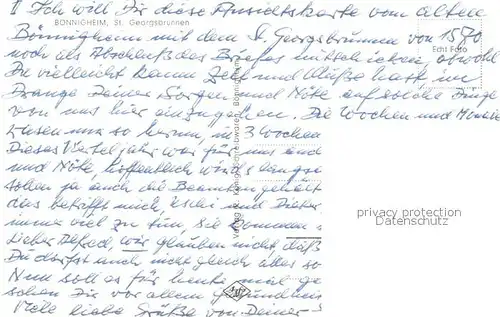 I Ich will Dir diese Ansichtskarte vom alten
BÖNNIGHEIM, St. Georgsbrunnen
Bönnigheim mit dem St. Georgsbrunnen von 1570
Echt Foto
noch als Abschluß des Briefes mitschicken, obwohl
Du vielleicht kaum Zeit und Muße hast, im
Drange Deiner Sorgen und Nöte auf solche Dinge
von uns hier einzugehen. Die Wochen und Monate
rasen nur so herum, in 3 Wochen
Dieses Vierteljahr war für uns
und Nöte, hoffentlich wird's langsam
sollen ja auch die Beamten
das betrifft mich, und Dieter
immer viel zu tun, Sie kommen
Lieber Alfred, wir glauben nicht, daß
Du darfst auch nicht gleich alles so
Nun soll es für heute mal
schon Dir vor allem Gesundheit
Viele liebe Grüße von Deiner
privacy protection
Datenschutz